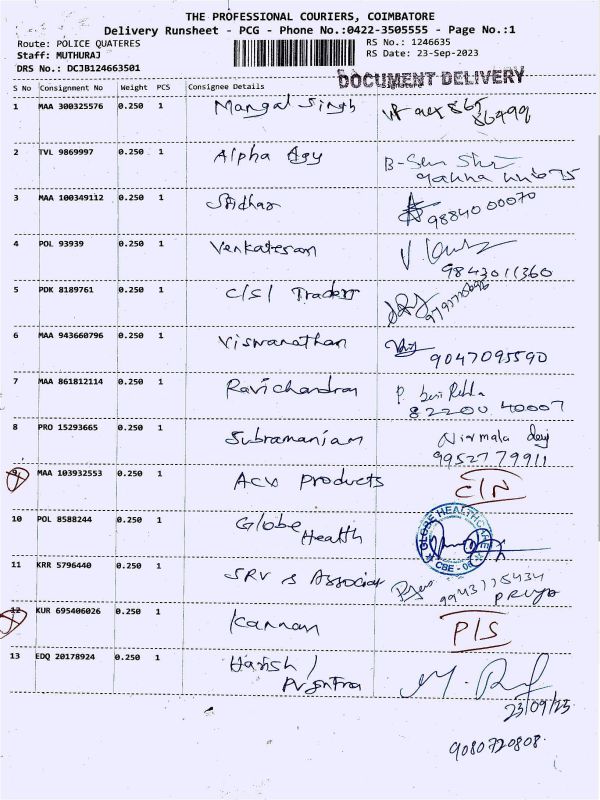 THE PROFESSIONAL COURIERS, COIMBATORE
Delivery Runsheet - PCG - Phone No.:0422-3505555 - Page No.:1
Route: POLICE QUATERES RS No.: 1246635
Staff: MUTHURAJ RS Date: 23-Sep-2023
DRS No.: DCJB124663501
DOCUMENT DELIVERY
S No Consignment No Weight PCS Consignee Details Signature
1 MAA 300325576 0.250 1 Mangal Singh
2 TVL 9869997 0.250 1 Alpha Agy
3 MAA 100349112 0.250 1 Sridhar
9884000070
4 POL 93939 0.250 1 Venkatesam
9843011360
5 PDK 8189761 0.250 1 C/S/ Traders
6 MAA 943660796 0.250 1 Viswanathan
9047095590
7 MAA 861812114 0.250 1 Ravichandran
82200 40007
8 PRO 15293665 0.250 1 Subramaniam Nirmala devi
9952779911
9 MAA 103932553 0.250 1 ACV Products C/N
10 POL 8588244 0.250 1 Globe Health
GLOBE HEALTHCARE
CBE - 06
11 KRR 5796440 0.250 1 SRV S Associat
9943115434
PRIYA
12 KUR 695406026 0.250 1 Kannan P/S
13 EDQ 20178924 0.250 1 Harish /
23/09/23
9080720808